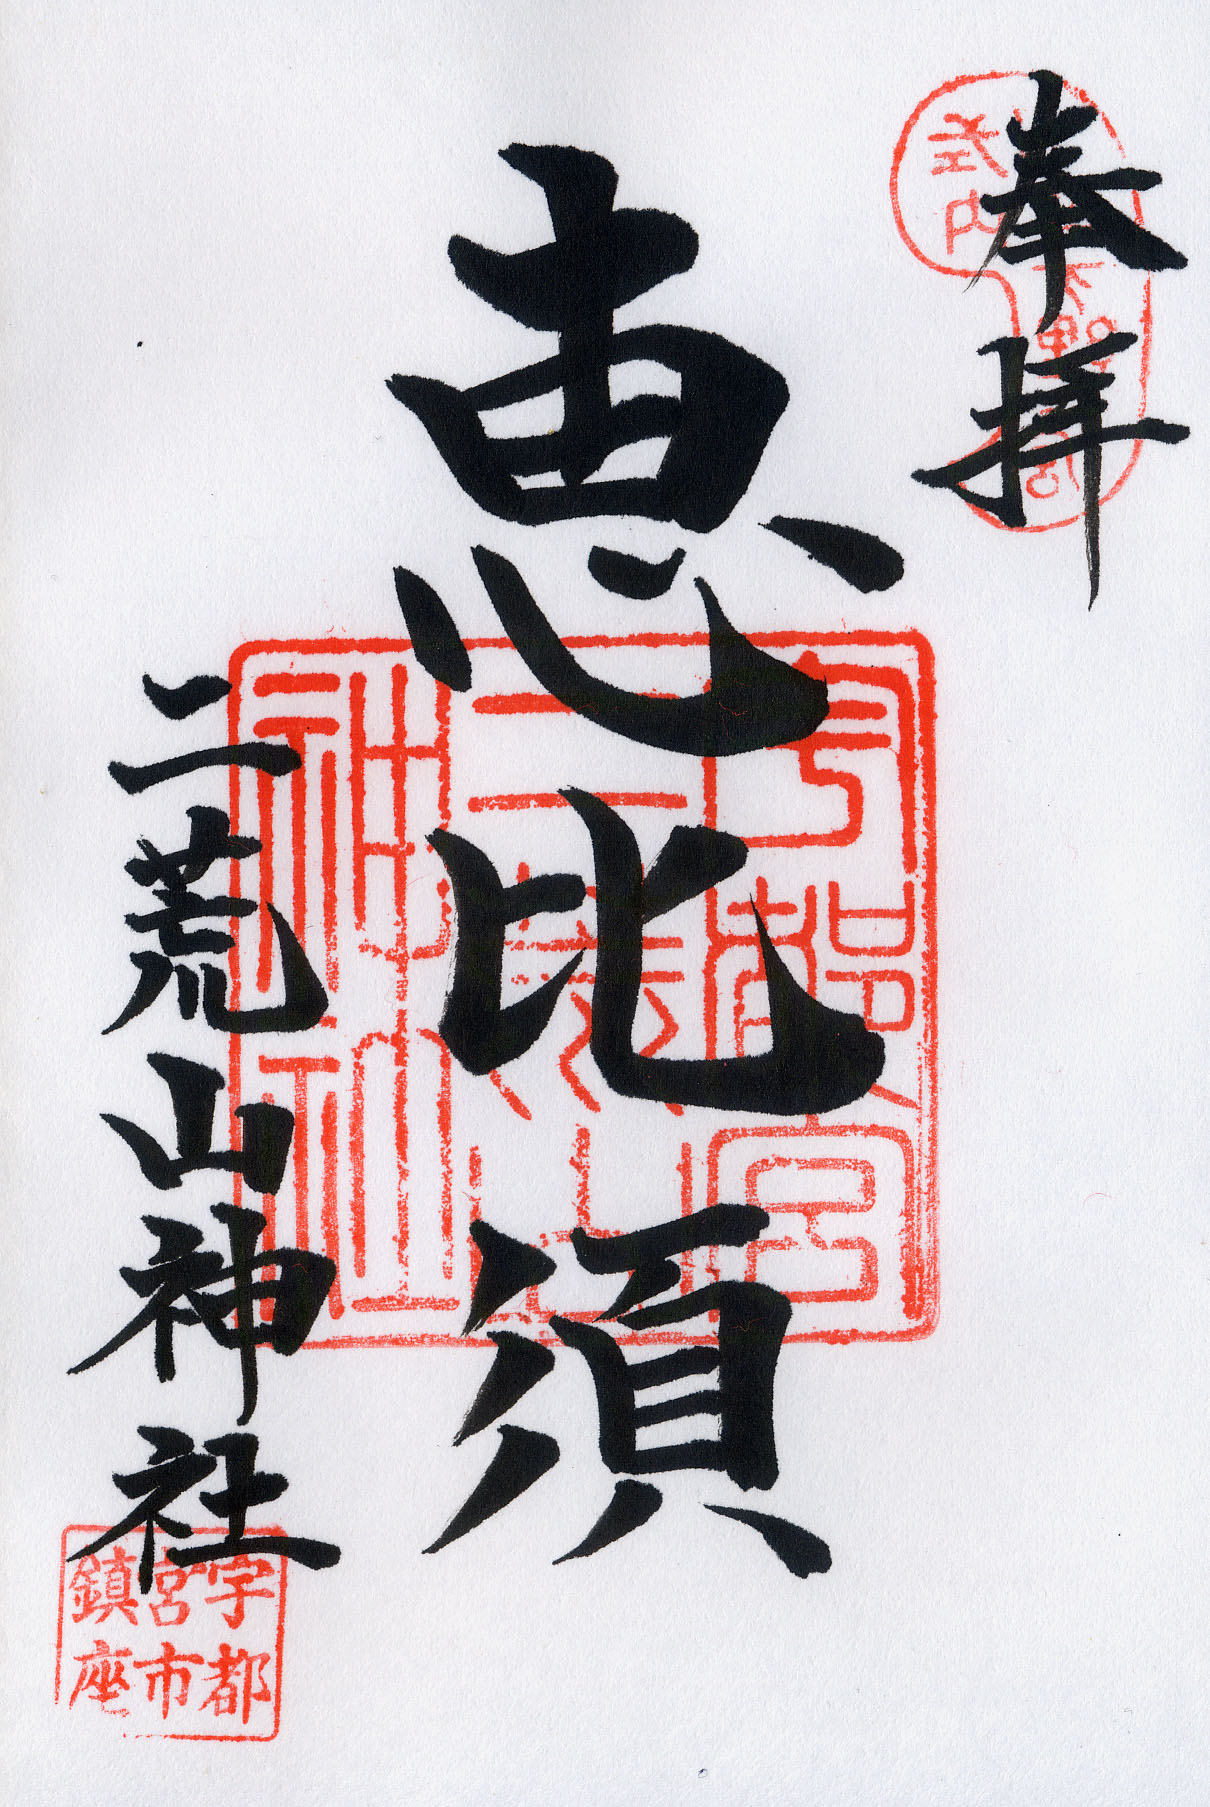 奉拝
恵比須
宇都宮
二荒山
神社
二荒山神社
宇都
宮市
鎮座